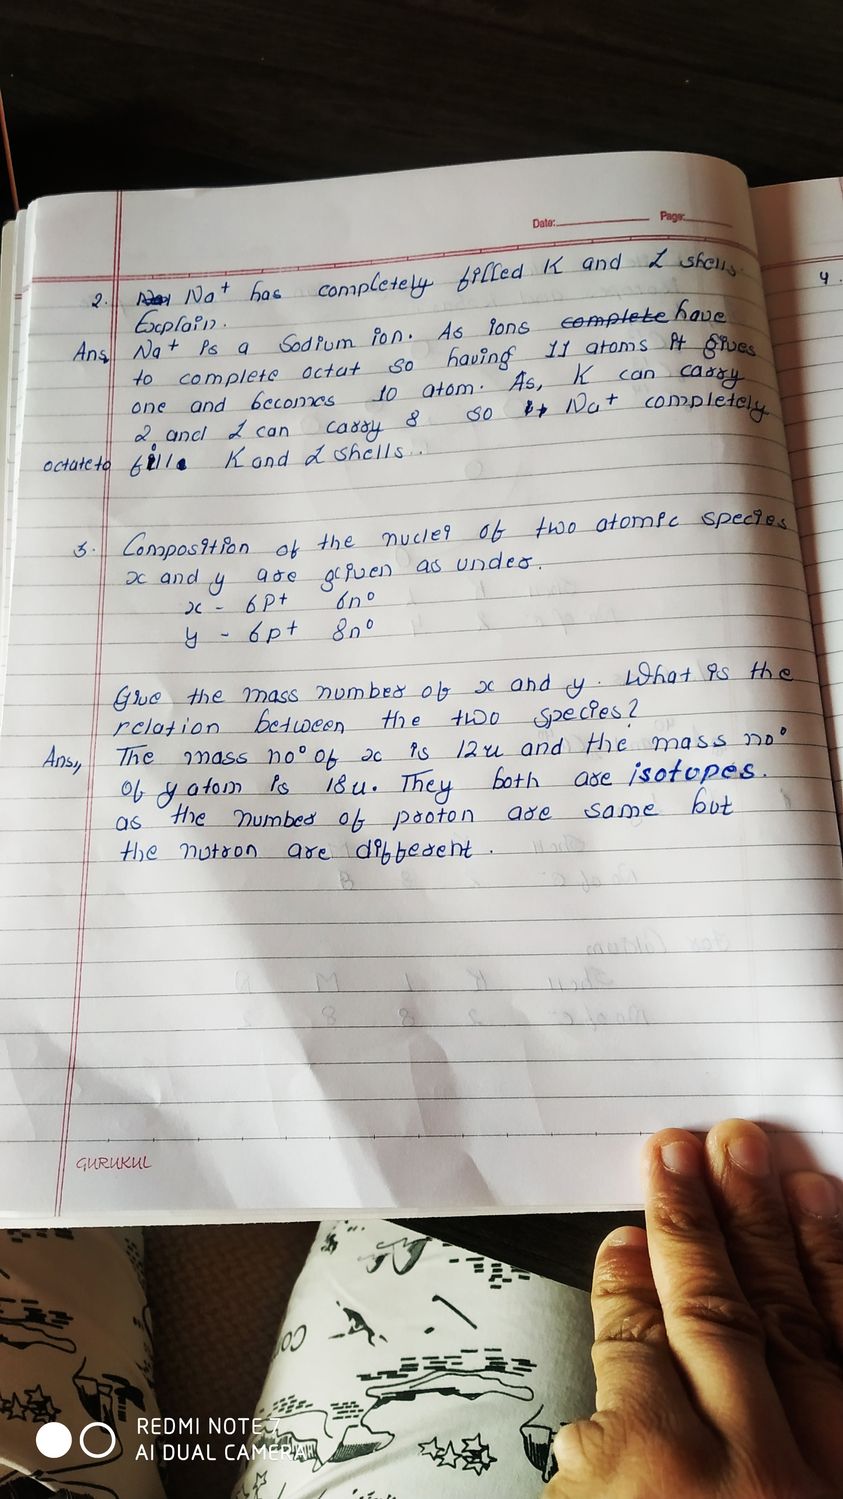 Date: Page:
2. Na+ has completely filled K and L shells.
Explain.
Ans, Na+ is a Sodium ion. As ions complete have
to complete octat so having 11 atoms it gives
one and becomes 10 atom. As, K can carry
2 and L can carry 8 so Na+ completely
octate to fill K and L shells..
3. Composition of the nuclei of two atomic species
x and y are given as under.
x - 6P+ 6n°
y - 6p+ 8n°
Give the mass number of x and y. What is the
relation between the two species?
Ans, The mass no° of x is 12u and the mass no°
of y atom is 18u. They both are isotopes.
as the number of proton are same but
the nutron are different.
4.
GURUKUL
REDMI NOTE 7
AI DUAL CAMERA